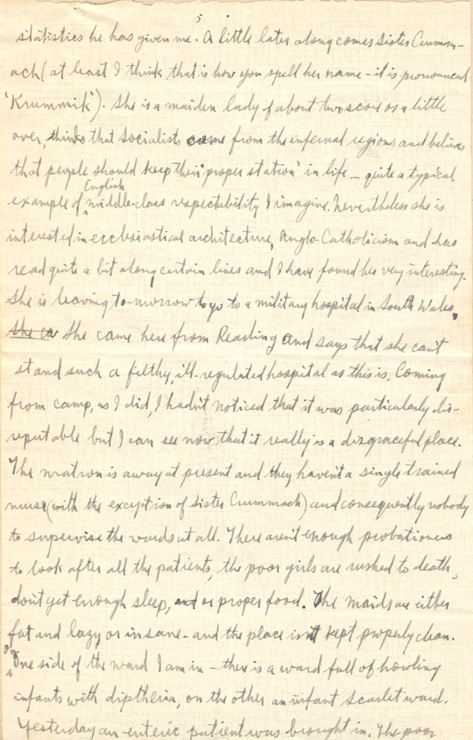 5
statistics he has given me. A little later along comes Sister Crumm-
ach (at least I think that is how you spell her name - it is pronounced
'Krummik'). She is a maiden lady of about two score or a little
over, thinks that Socialists come from the infernal regions and believes
that people should keep their 'proper station' in life - quite a typical
English
example of middle-class respectability I imagine. Nevertheless she is
interested in ecclesiastical architecture, Anglo-Catholicism and has
read quite a bit along certain lines and I have found her very interesting.
She is leaving to-morrow to go to a military hospital in South Wales.
She ca She came here from Reading and says that she can't
stand such a filthy, ill-regulated hospital as this is. Coming
from camp, as I did, I hadn't noticed that it was particularly dis-
reputable but I can see now that it really is a disgraceful place.
The matron is away at present and they haven't a single trained
nurse (with the exception of Sister Crummach) and consequently nobody
to supervise the wards at all. There aren't enough probationers
to look after all the patients, the poor girls are rushed to death,
don't get enough sleep, and or proper food. The maids are either
fat and lazy or insane - and the place isn't kept properly clean.
On
One side of the ward I am in - there is a ward full of howling
infants with diptheria, on the other an infant scarlet ward.
Yesterday an enteric patient was brought in. The poor